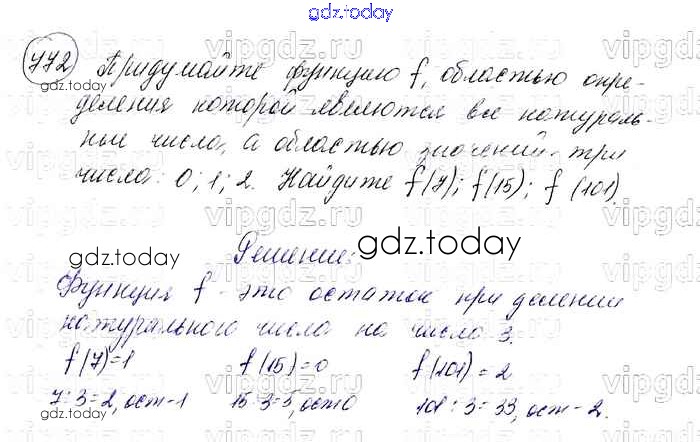 gdz.today
772 Придумайте функцию f, областью опре-
деления которой являются все натураль-
ные числа, а областью значений - три
числа: 0; 1; 2. Найдите f(7); f(15); f(101).
Решение:
Функция f - это остаток при делении
натурального числа на число 3.
f(7)=1 f(15)=0 f(101)=2
7:3=2, ост-1 15:3=5, ост 0 101:3=33, ост-2.
vipgdz.ru
gdz.today
gdz.today
gdz.today
gdz.today